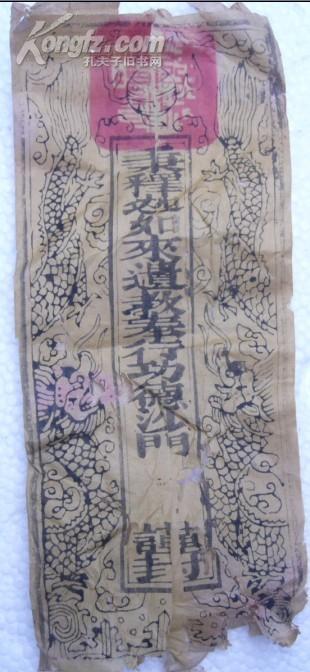 Kongfz.com
孔夫子旧书网
秉釋迦如來遺教奉行功德沙門